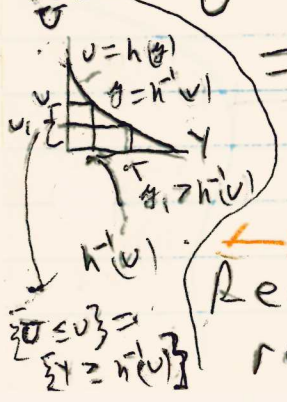 U
U = h(y)
y = h⁻¹(u)
u
u₁
Y
y₁ > h⁻¹(u)
h⁻¹(u)
Re
{U ≤ u} =
{Y ≥ h⁻¹(u)}
r